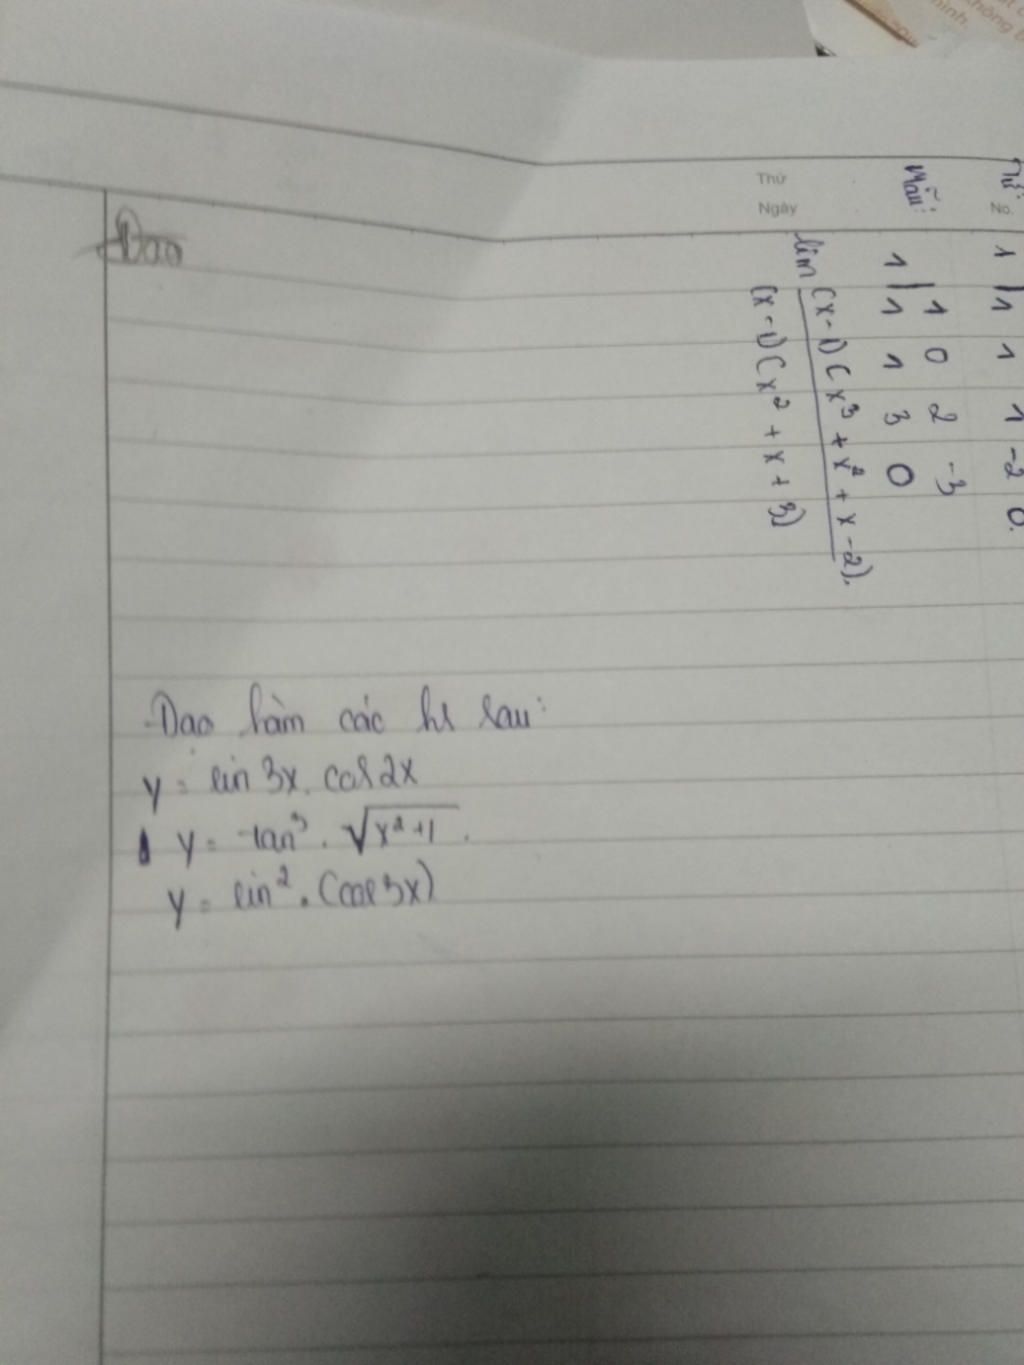 Đạo
Thứ
Ngày
No.
Tử:
1 | 1 1 1 -2 0.
Mẫu:
1 0 2 -3
1 | 1 1 3 0
lim (x-1)(x³ + x² + x - 2).
(x-1)(x² + x + 3)
Đạo hàm các hs sau:
y = sin 3x. cos 2x
y = tan³ . √x²+1 .
y = sin² . (cos 3x)
không
mình.